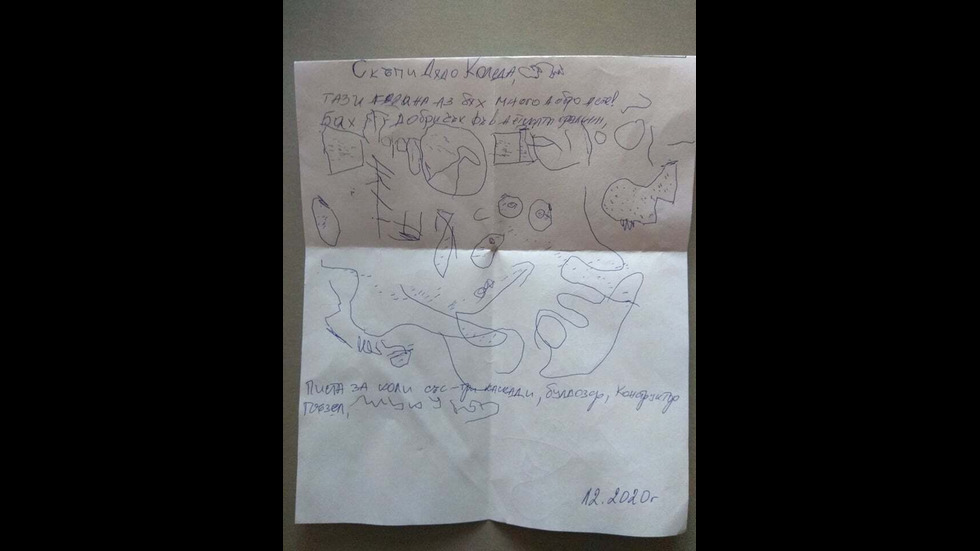 Скъпи Дядо Коледа,
тази година аз бях много добро дете!
Бях добричък и в детската градина,
Писта за коли със три, булдозер, конструктор
пъзел,
12.2020г